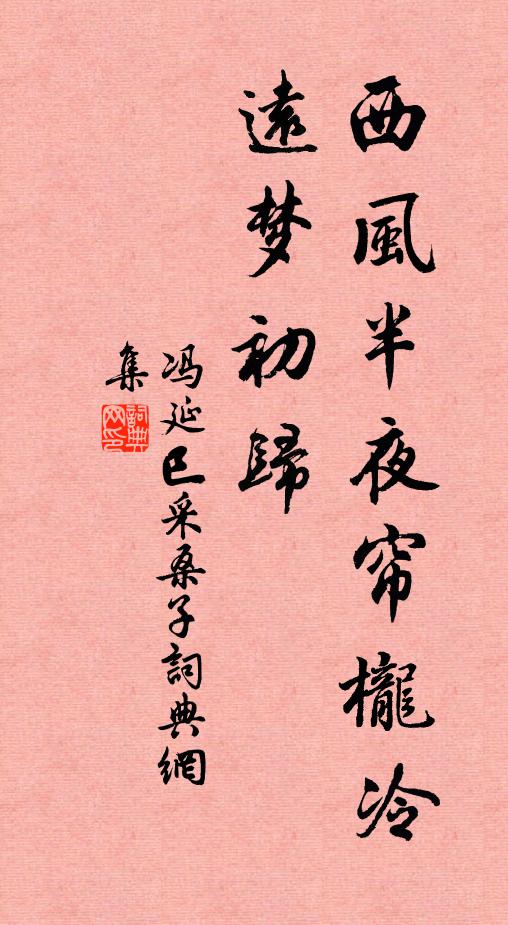 西風半夜帘櫳冷
遠梦初歸
冯延巳采桑子詞典網
集
詞典網印